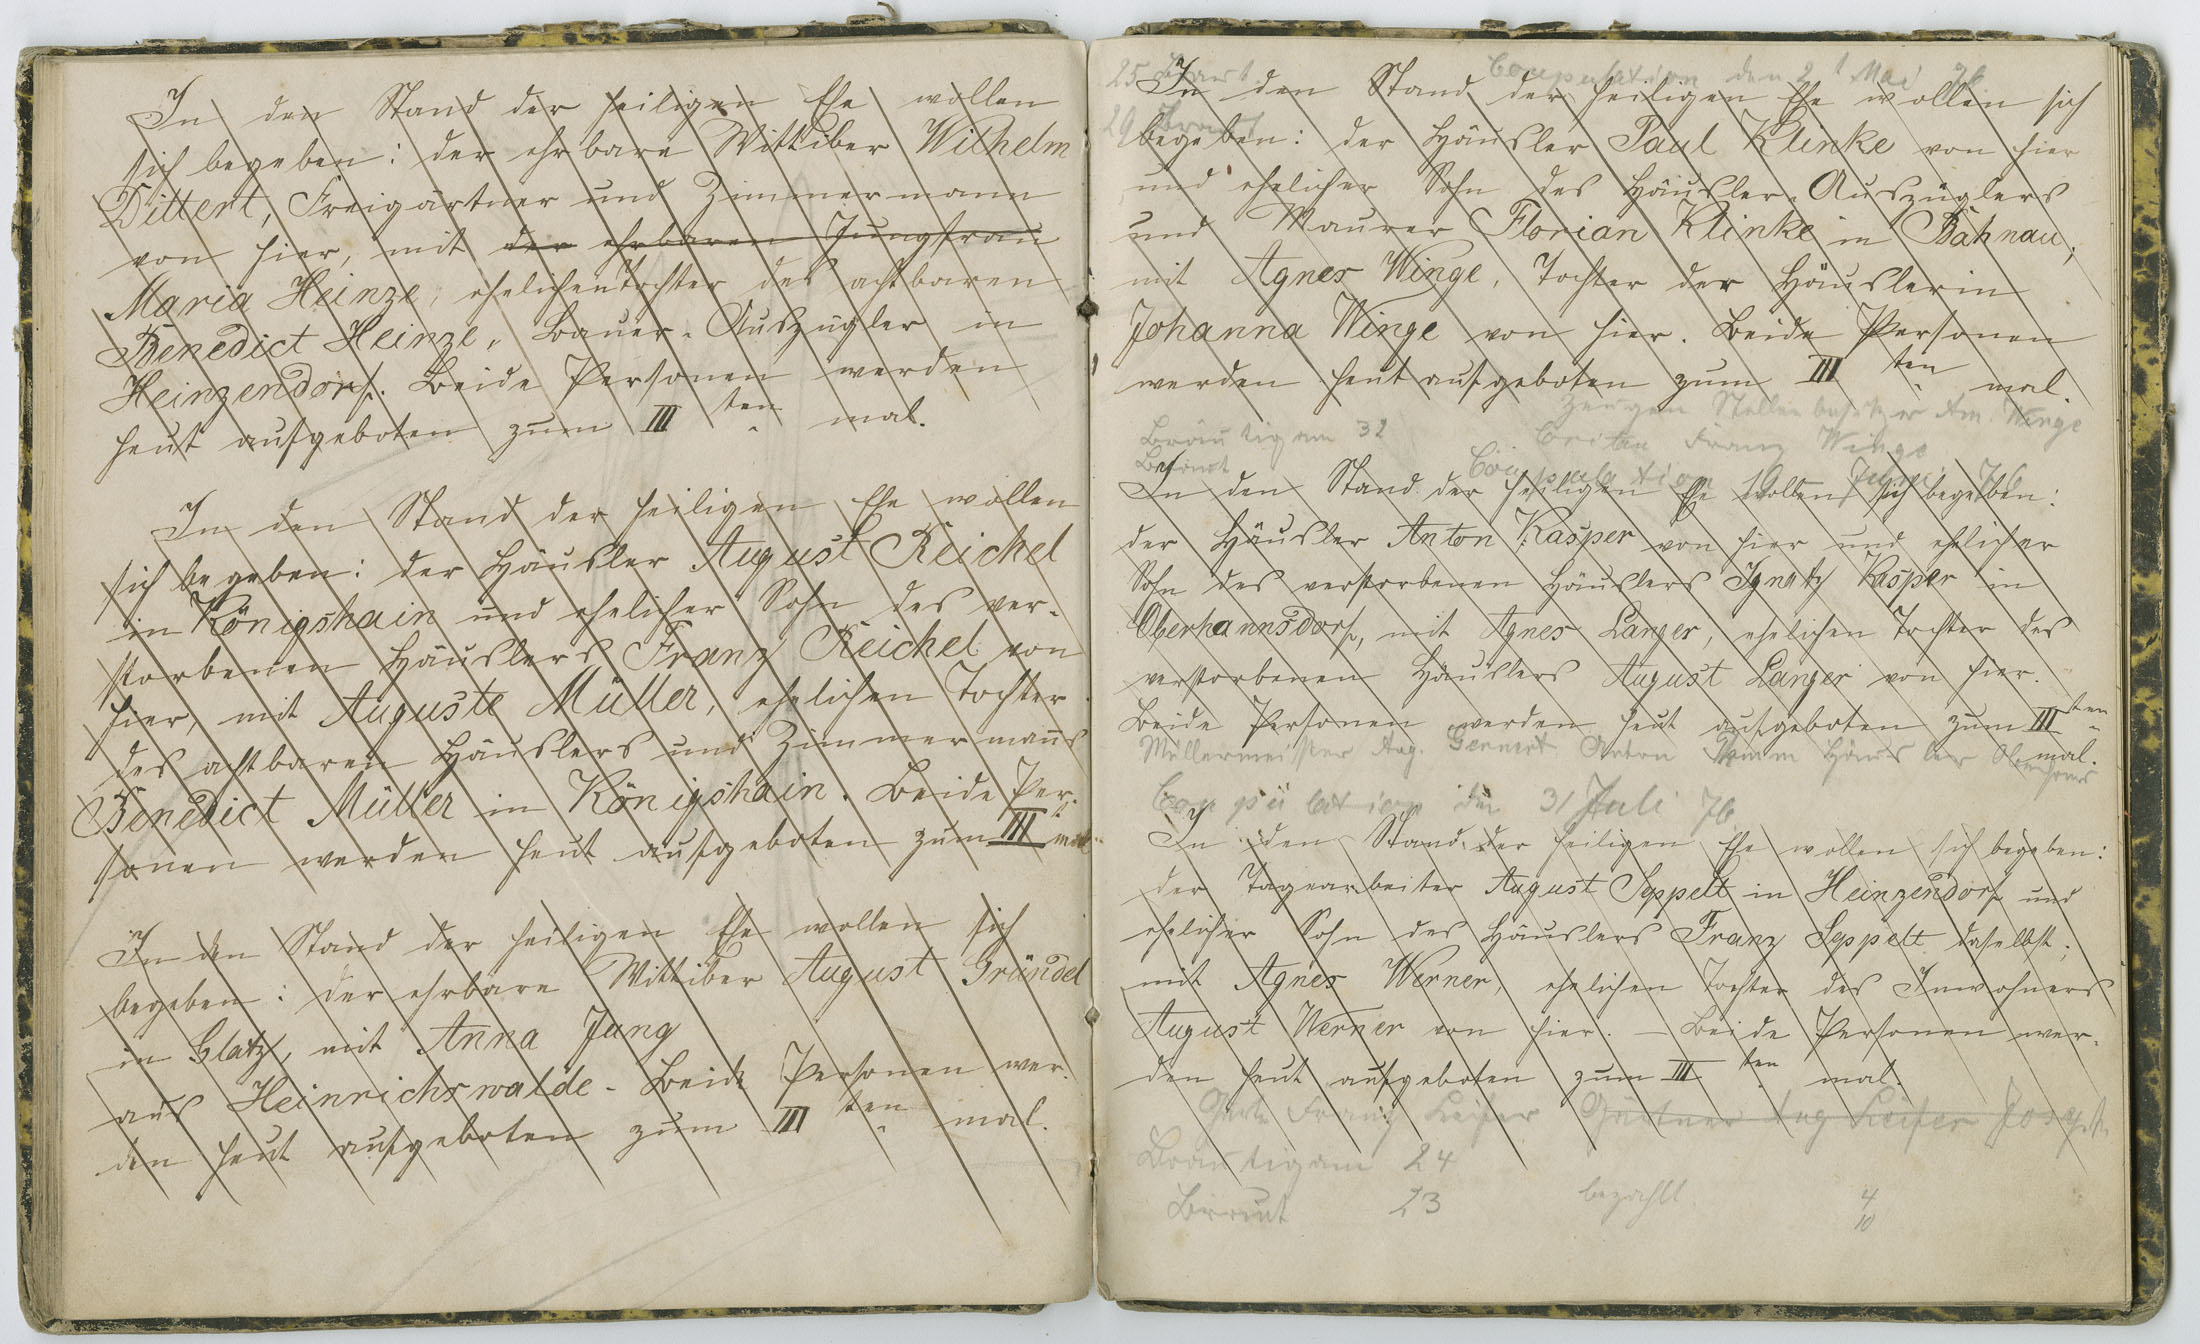 In den Stand der heiligen Ehe wollen
sich begeben: der ehrbare Wittiber Wilhelm
Dittert, Freigärtner und Zimmermann
von hier, mit der ehrbaren Jungfrau
Maria Heinze, ehelichen Tochter des achtbaren
Benedict Heinze, Bauer-Auszügler in
Heinzendorf. Beide Personen werden
heut aufgeboten zum III ten mal.
In den Stand der heiligen Ehe wollen
sich begeben: der Häusler August Reichel
in Königshain und ehelicher Sohn des ver-
storbenen Häuslers Franz Reichel von
hier, mit Auguste Müller, ehelichen Tochter
des achtbaren Häuslers und Zimmermanns
Benedict Müller in Königshain. Beide Per-
sonen werden heut aufgeboten zum III mal
In den Stand der heiligen Ehe wollen sich
begeben: der ehrbare Wittiber August Gründel
in Glatz, mit Anna Jung
aus Heinrichswalde - Beide Personen wer-
den heut aufgeboten zum III ten mal.
25 Copulation den Mai
29 Braut
In den Stand der heiligen Ehe wollen sich
begeben: der Häusler Paul Klinke von hier
und ehelicher Sohn des Häusler-Auszüglers
und Maurer Florian Klinke in Bähnau,
mit Agnes Winge, Tochter der Häuslerin
Johanna Winge von hier. Beide Personen
werden heut aufgeboten zum III ten mal.
Zeugen Stellenbesitzer Am. Winge
Bräutigam 32 Franz Winge
Braut Copulation Juni 76
In den Stand der heiligen Ehe wollen sich begeben:
der Häusler Anton Kasper von hier und ehelicher
Sohn des verstorbenen Häuslers Ignatz Kasper in
Oberhannsdorf, mit Agnes Langer, ehelichen Tochter des
verstorbenen Häuslers August Langer von hier.
Beide Personen werden heut aufgeboten zum III ten
mal.
Müllermeister Aug. Gennert Anton Häusler
Copulation den 31 Juli 76
In den Stand der heiligen Ehe wollen sich begeben:
der Tagearbeiter August Seppelt in Heinzendorf und
ehelicher Sohn des Häuslers Franz Seppelt daselbst;
mit Agnes Werner, ehelichen Tochter des Inwohners
August Werner von hier. - Beide Personen wer-
den heut aufgeboten zum III ten mal.
Franz Gärtner Aug
Bräutigam 24
Braut 23 bezahlt 4
10